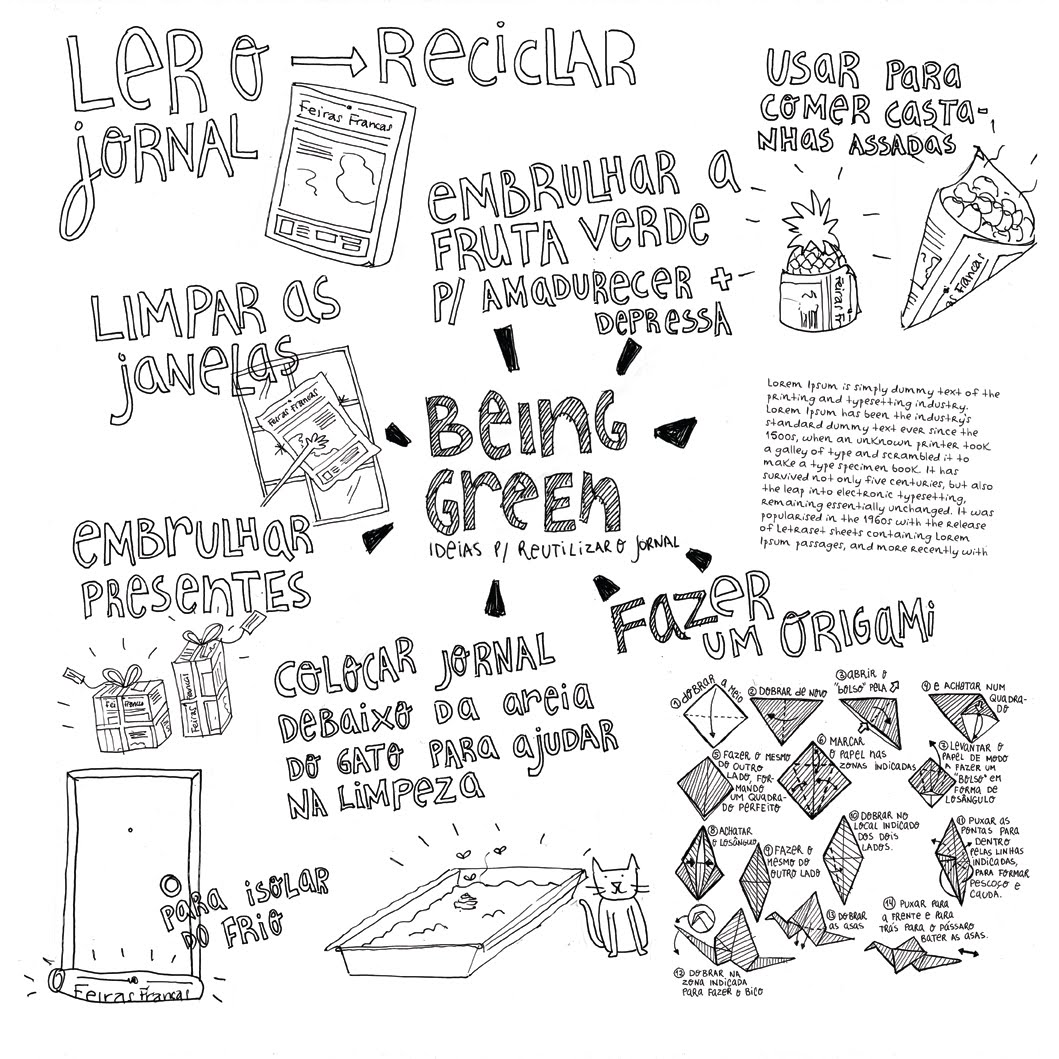 LER O → RECICLAR
JORNAL
Feiras Francas
USAR PARA
COMER CASTA-
NHAS ASSADAS
EMBRULHAR A
FRUTA VERDE
P/ AMADURECER +
DEPRESSA
Feiras F
s Francas
LIMPAR AS
JANELAS
Feiras Francas
BEING
GREEN
IDEIAS P/ REUTILIZAR O JORNAL
Lorem Ipsum is simply dummy text of the
printing and typesetting industry.
Lorem Ipsum has been the industry's
standard dummy text ever since the
1500s, when an unknown printer took
a galley of type and scrambled it to
make a type specimen book. It has
survived not only five centuries, but also
the leap into electronic typesetting,
remaining essentially unchanged. It was
popularised in the 1960s with the release
of Letraset sheets containing Lorem
Ipsum passages, and more recently with
EMBRULHAR
PRESENTES
Fei Franca
Feiras Francas
COLOCAR JORNAL
DEBAIXO DA AREIA
DO GATO PARA AJUDAR
NA LIMPEZA
PARA ISOLAR
DO FRIO
Feiras Francas
FAZER
UM ORIGAMI
① DOBRAR A MEIO
② DOBRAR DE NOVO
③ ABRIR O
"BOLSO" PELA
④ E ACHATAR NUM
QUADRA-
DO
⑤ FAZER O MESMO
DO OUTRO
LADO, FOR-
MANDO
UM QUADRA-
DO PERFEITO
⑥ MARCAR
O PAPEL NAS
ZONAS INDICADAS
LEVANTAR O
PAPEL DE MODO
A FAZER UM
"BOLSO" EM
FORMA DE
LOSÂNGULO
⑧ ACHATAR
O LOSÂNGULO
⑨ FAZER O
MESMO DO
OUTRO LADO
⑩ DOBRAR NO
LOCAL INDICADO
DOS DOIS
LADOS.
⑪ PUXAR AS
PONTAS PARA
DENTRO
PELAS LINHAS
INDICADAS,
PARA FORMAR
PESCOÇO E
CAUDA.
⑫ DOBRAR NA
ZONA INDICADA
PARA FAZER O BICO
⑬ DOBRAR
AS ASAS
⑭ PUXAR PARA
A FRENTE E PARA
TRÁS PARA O PÁSSARO
BATER AS ASAS.